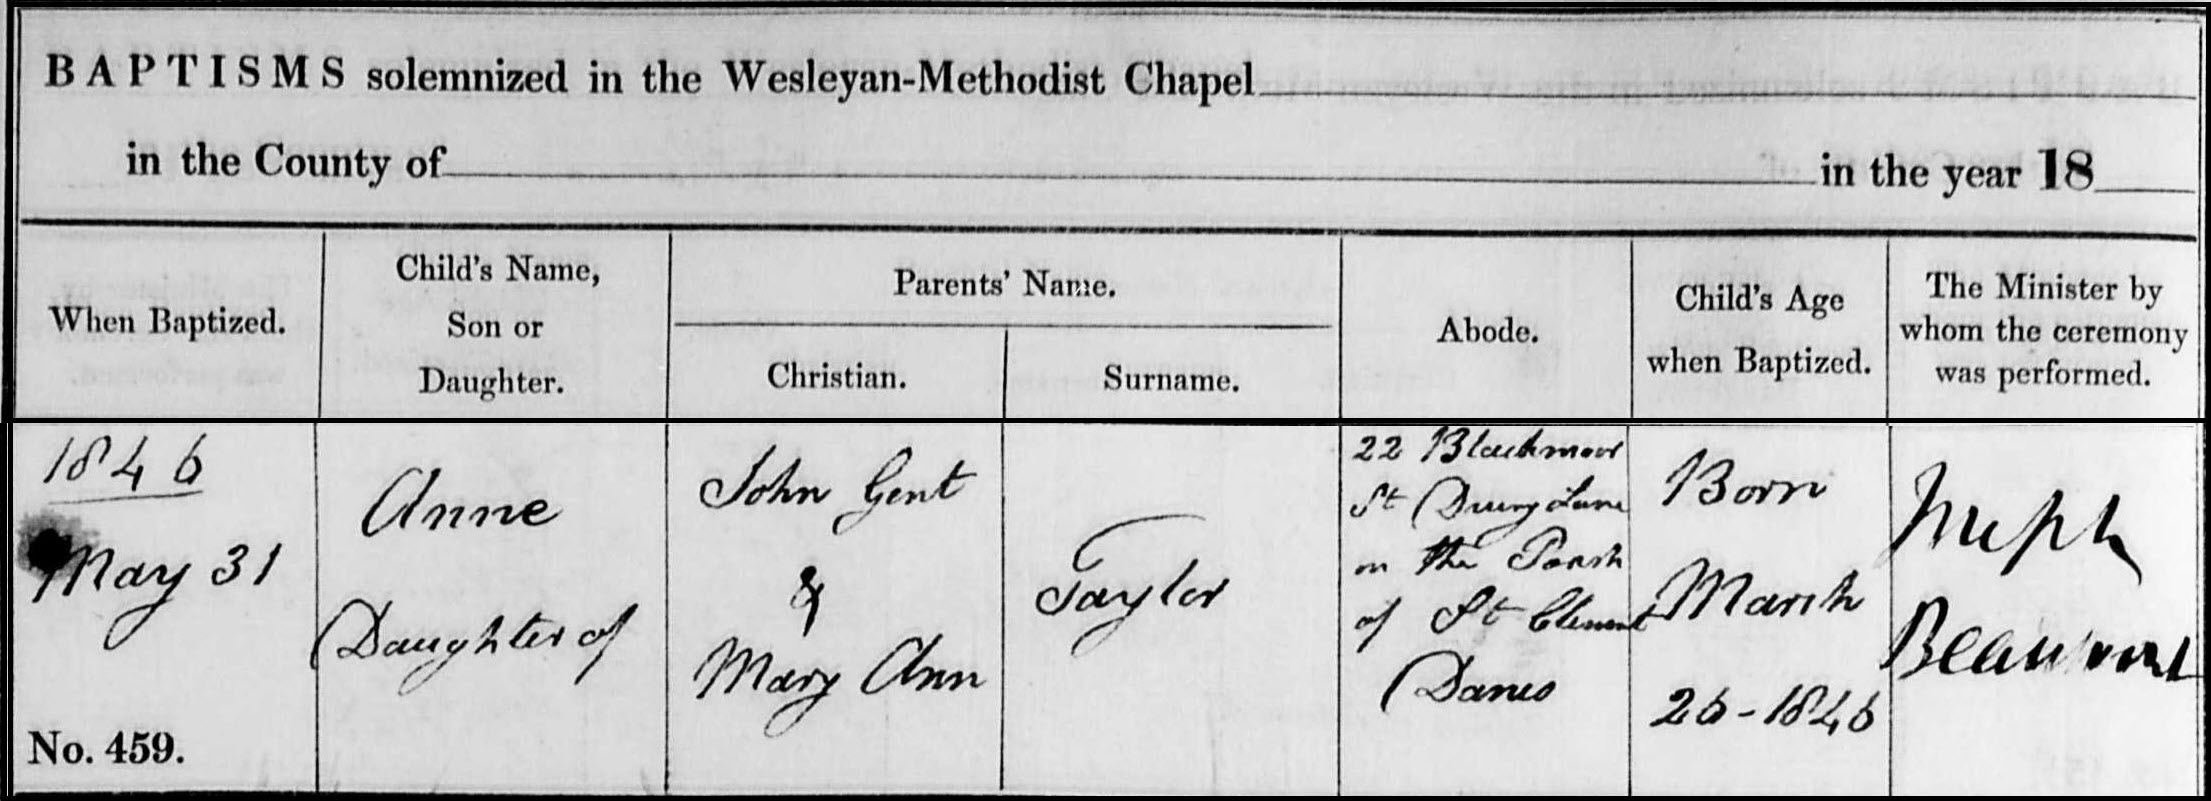 BAPTISMS solemnized in the Wesleyan-Methodist Chapel
in the County of in the year 18
When Baptized.
Child's Name,
Son or
Daughter.
Parents' Name.
Christian.
Surname.
Abode.
Child's Age
when Baptized.
The Minister by
whom the ceremony
was performed.
1846
May 31
No. 459.
Anne
Daughter of
John Gent
&
Mary Ann
Taylor
22 Blackmoor
St Drury Lane
in the Parish
of St Clement
Danes
Born
March
26-1846
Joseph
Beaumont